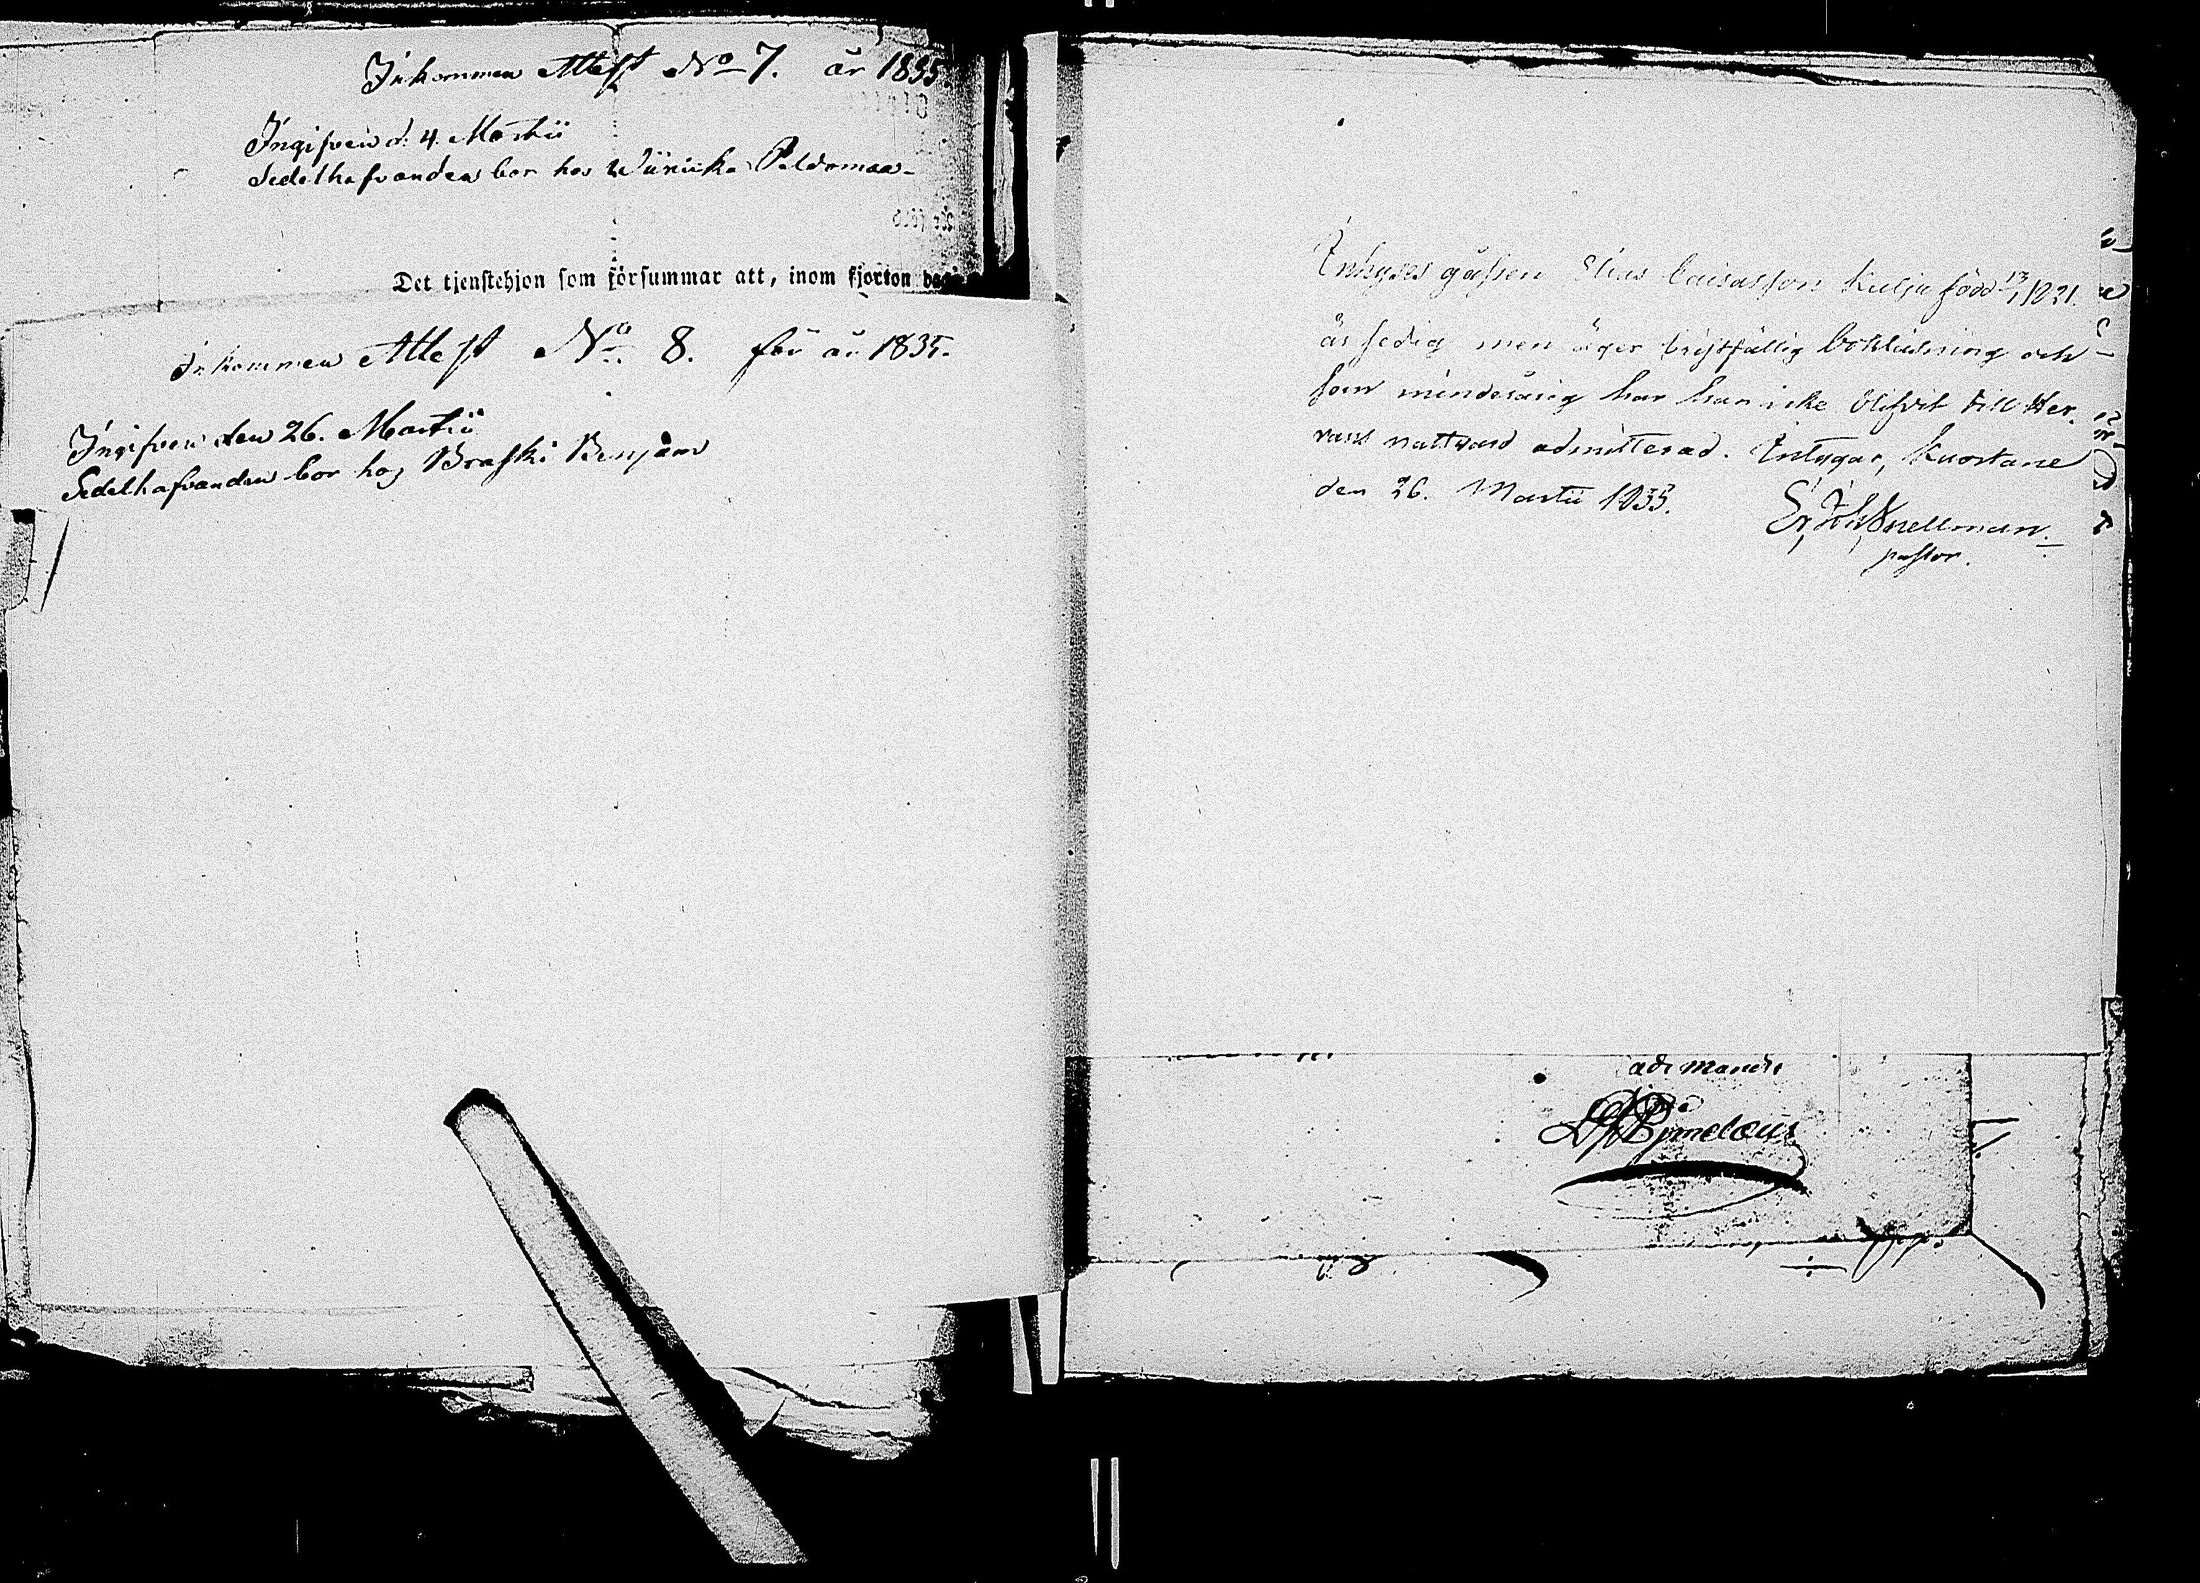 Inkommen Attest No 7. år 1835.
Ingifven d. 4. Martii
Sedelhafvanden bor hos Wiinicka Peldomaa
Det tjenstehjon som försummar att, inom fjorton dag
Inkommen Attest No. 8. för år 1835.
Ingifven den 26. Martii
Sedelhafvanden bor hos Braski Benjam
Inhyses gossen Elias Caisasson Kulju född 13/1 1821.
är sedig men äger bristfällig bokläsning och
som minderårig har han icke blifvit till Her-
rans nattvard admitterad. Intygar, Kuortane
den 26. Martii 1835.
Er. Joh. Snellman.
pastor.